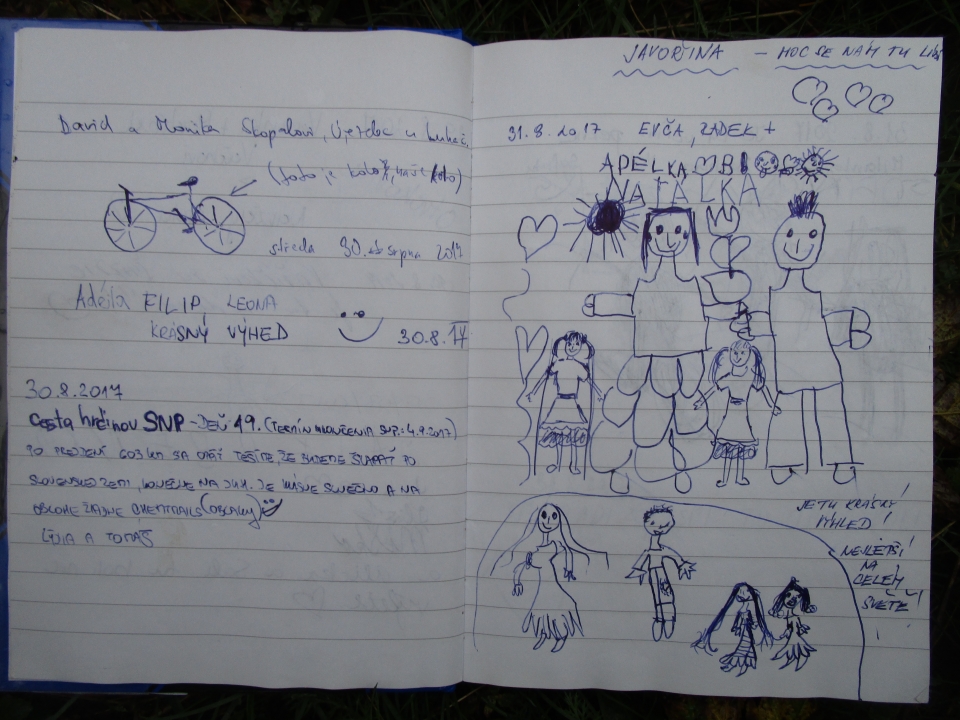 David a Monika Skopalovi, Újezdec u Luhač.
(foto je kolo
středa 30. srpna 2017
Adéla FILIP, LEONA
KRÁSNÝ VÝHED
30.8.17
30.8.2017
Cesta hrdinov SNP - DEŇ 19. (TERMÍN UKONČENIA SNP: 4.9.2017)
PO PREJDENÍ 603 KM SA OPÄŤ TEŠÍME, ŽE BUDEME ŠĽAPAŤ PO
SLOVENSKEJ ZEMI, KONEČNE NA JUH. JE KRÁSNE SLNEČNO A NA
OBLOHE ŽIADNE CHEMTRAILS (OBLAKY)
LÝDIA A TOMÁŠ
JAVOŘINA - MOC SE NÁM TU LÍBÍ
31.8.2017 EVČA, RADEK +
ADÉLKA
NATÁLKA
JE TU KRÁSNÝ
VÝHLED!
NEJLEPŠÍ
NA
CELÉM
SVĚTĚ!